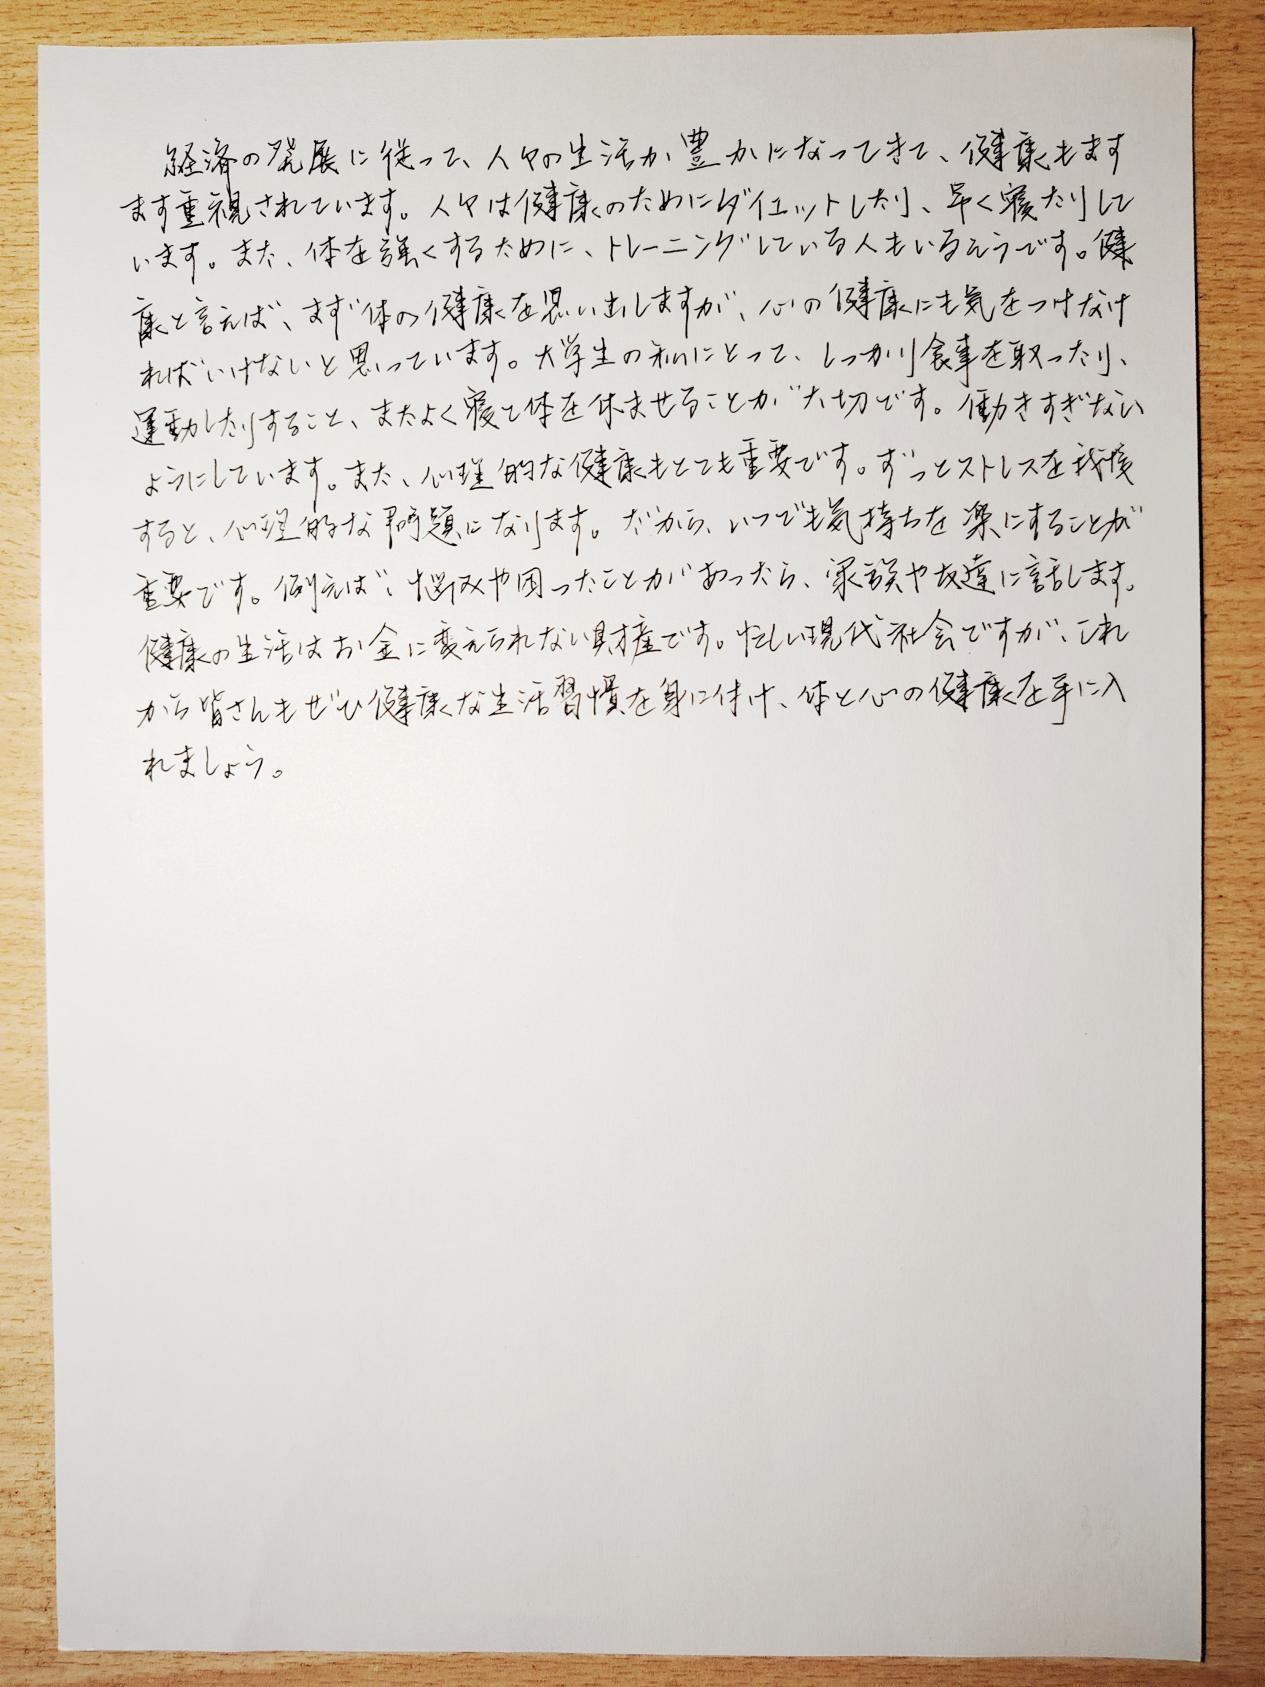 経済の発展に従って、人々の生活が豊かになってきて、健康もます
ます重視されています。人々は健康のためにダイエットしたり、早く寝たりして
います。また、体を強くするために、トレーニングしている人もいるそうです。健
康と言えば、まず体の健康を思い出しますが、心の健康にも気をつけなけ
ればいけないと思っています。大学生の私にとって、しっかり食事を取ったり、
運動したりすること、またよく寝て体を休ませることが大切です。働きすぎない
ようにしています。また、心理的な健康もとても重要です。ずっとストレスを我慢
すると、心理的な問題になります。だから、いつでも気持ちを楽にすることが
重要です。例えば、悩みや困ったことがあったら、家族や友達に話します。
健康の生活はお金に変えられない財産です。忙しい現代社会ですが、これ
から皆さんもぜひ健康な生活習慣を身に付け、体と心の健康を手に入
れましょう。